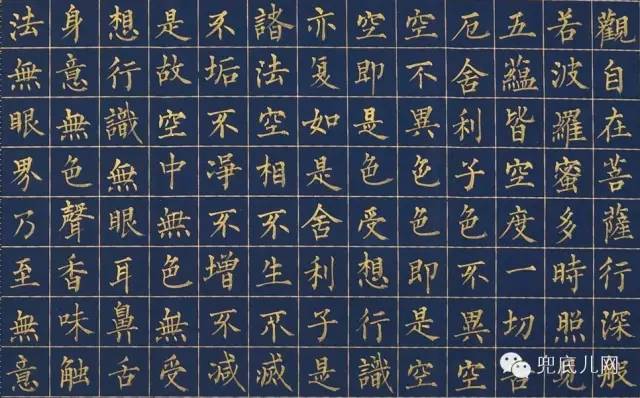 觀自在菩薩行深般
若波羅蜜多時照見
五蘊皆空度一切苦
厄舍利子色不異空
空不異色色即是空
空即是色受想行識
亦复如是舍利子是
諸法空相不生不滅
不垢不淨不增不减
是故空中無色無受
想行識無眼耳鼻舌
身意無色聲香味触
法無眼界乃至無意
兜底儿网